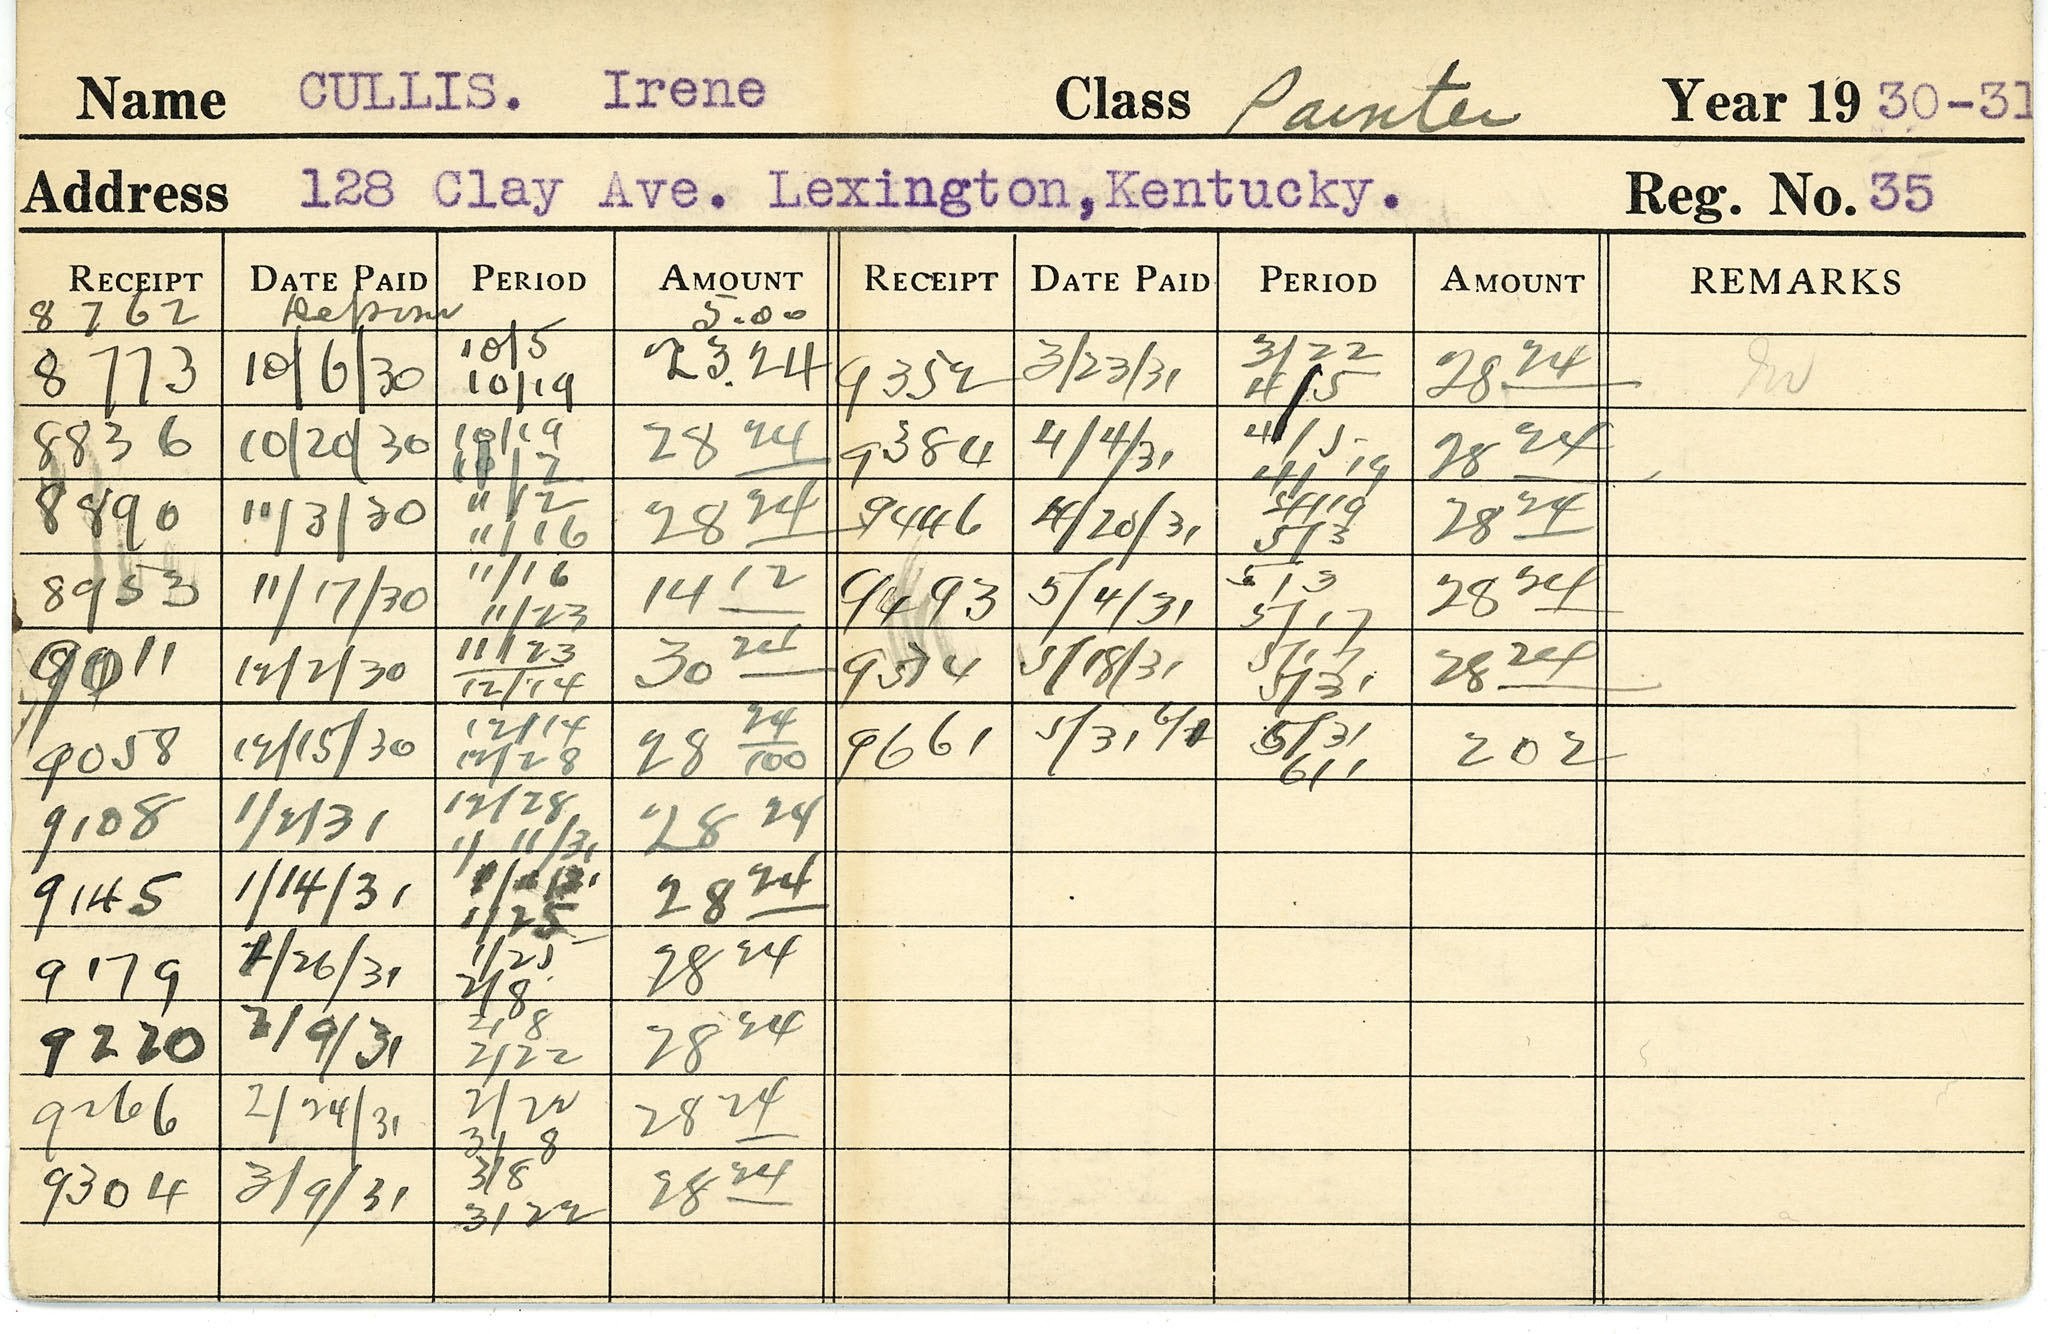 Name CULLIS. Irene Class Painter Year 19 30-31
Address 128 Clay Ave. Lexington, Kentucky. Reg. No. 35
RECEIPT DATE PAID PERIOD AMOUNT RECEIPT DATE PAID PERIOD AMOUNT REMARKS
8762 5.00
8773 10/6/30 10/5 10/19 23.24 9352 3/23/31 3/22 4/5 28 24
8836 10/20/30 10/19 11/2 28 24 9384 4/4/31 4/5 4/19 28 24
8890 11/3/30 11/2 11/16 28 24 9446 4/20/31 4/19 5/3 28 24
8953 11/17/30 11/16 11/23 14 12 9493 5/4/31 5/3 5/17 28 24
9011 12/2/30 11/23 12/14 30 24 9574 5/18/31 5/17 5/31 28 24
9058 12/15/30 12/14 12/28 28 24/100 9661 5/31 6/1 5/31 6/1 202
9108 1/2/31 12/28 1/11/31 28 24
9145 1/14/31 1/25 28 24
9179 1/26/31 1/25 2/8 28 24
9220 2/9/31 2/8 2/22 28 24
9266 2/24/31 2/22 3/8 28 24
9304 3/9/31 3/8 3/22 28 24